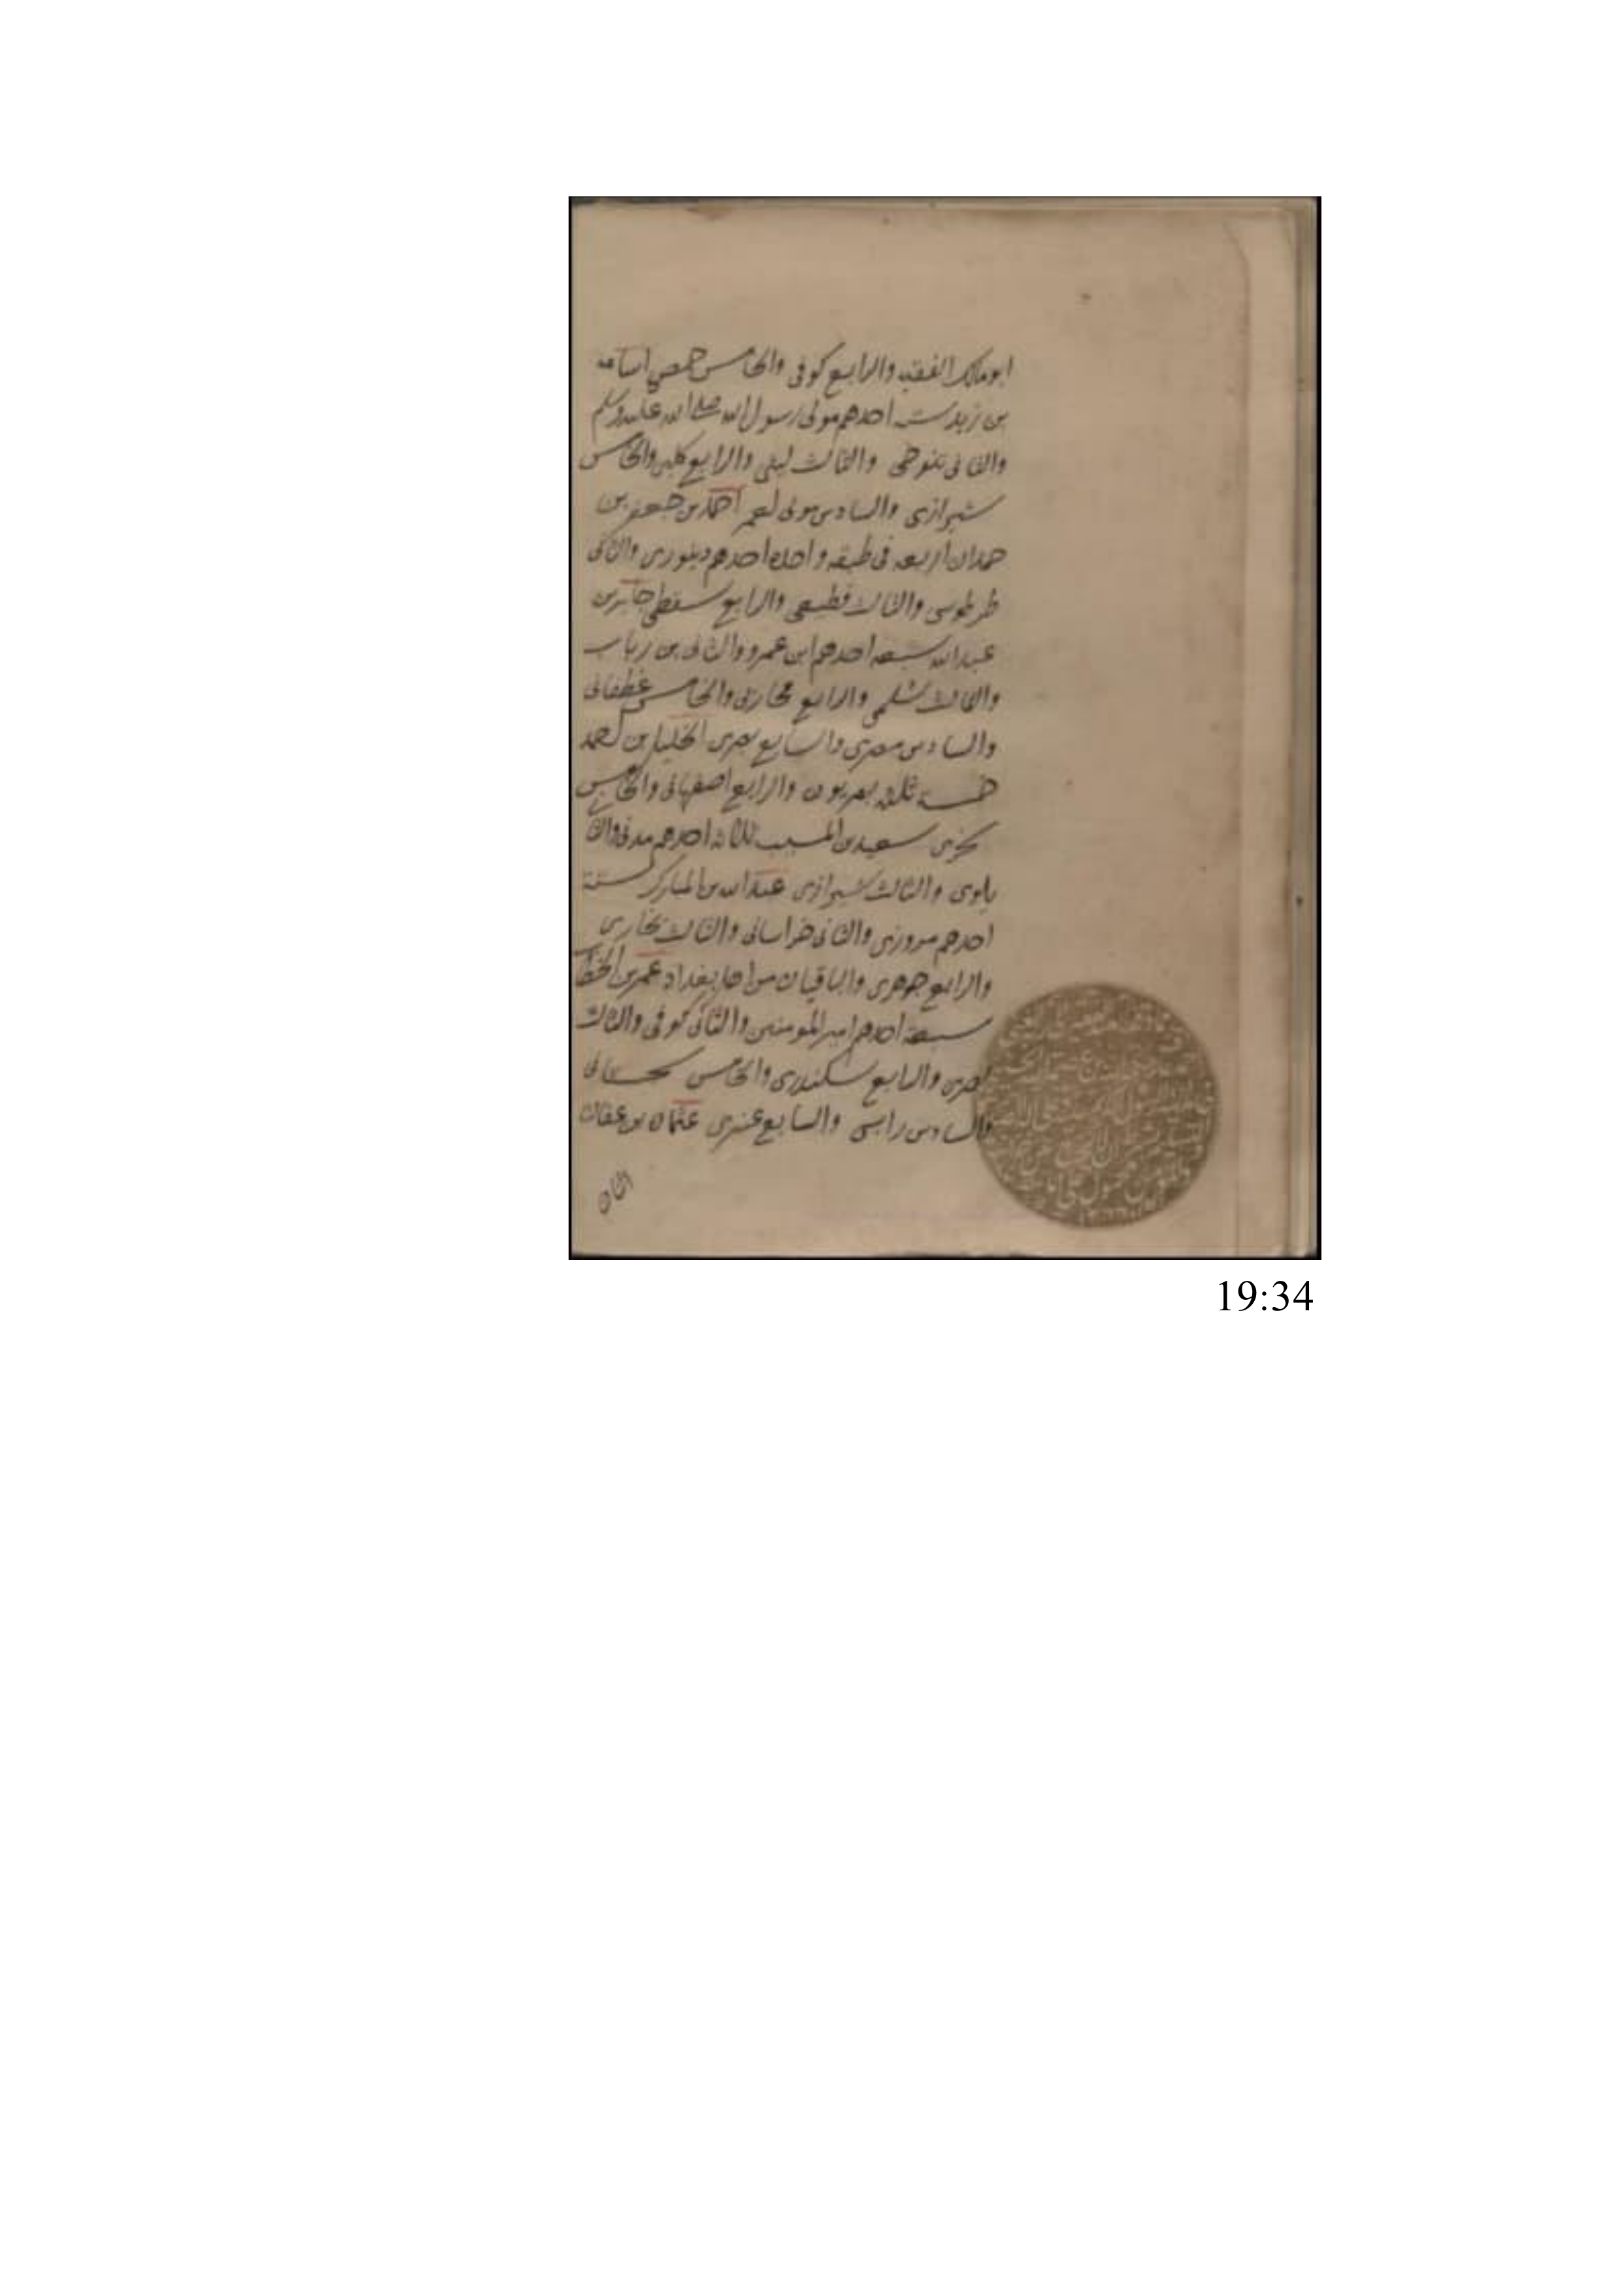 ابو مالك الفقيه والرابع كوفى والخامس حمصى اسامه
بن زيد ستة احدهم مولى رسول الله صلى الله عليه وسلم
والثانى تنوخى والثالث ليثى والرابع كلبى والخامس
شيرازى والسادس مولى لعمر احمد بن جعفر بن
حمدان اربعه فى طبقه واحده احدهم دينورى والثانى
طرطوسى والثالث قطيعى والرابع سقطى جابر بن
عبد الله سبعه احدهم ابن عمرو والثانى بن رباب
والثالث سلمى والرابع محاربى والخامس غطفانى
والسادس مصرى والسابع بصرى الخليل بن احمد
خمسة ثلثه بصريون والرابع اصفهانى والخامس
سعيد بن المسيب ثلاثه احدهم مدنى والثانى
بلوى والثالث شيرازى عبد الله بن المبارك ستة
احدهم مروزى والثانى خراسانى والثالث بخارى
والرابع جوهرى والباقيان من اهل بغداد عمر بن الخطاب
سبعة احدهم امير المومنين والثانى كوفى والثالث
بصرى والرابع سكندرى والخامس سجستانى
والسادس راسبى والسابع عنبرى عثمان بن عفان
اثنان
19:34